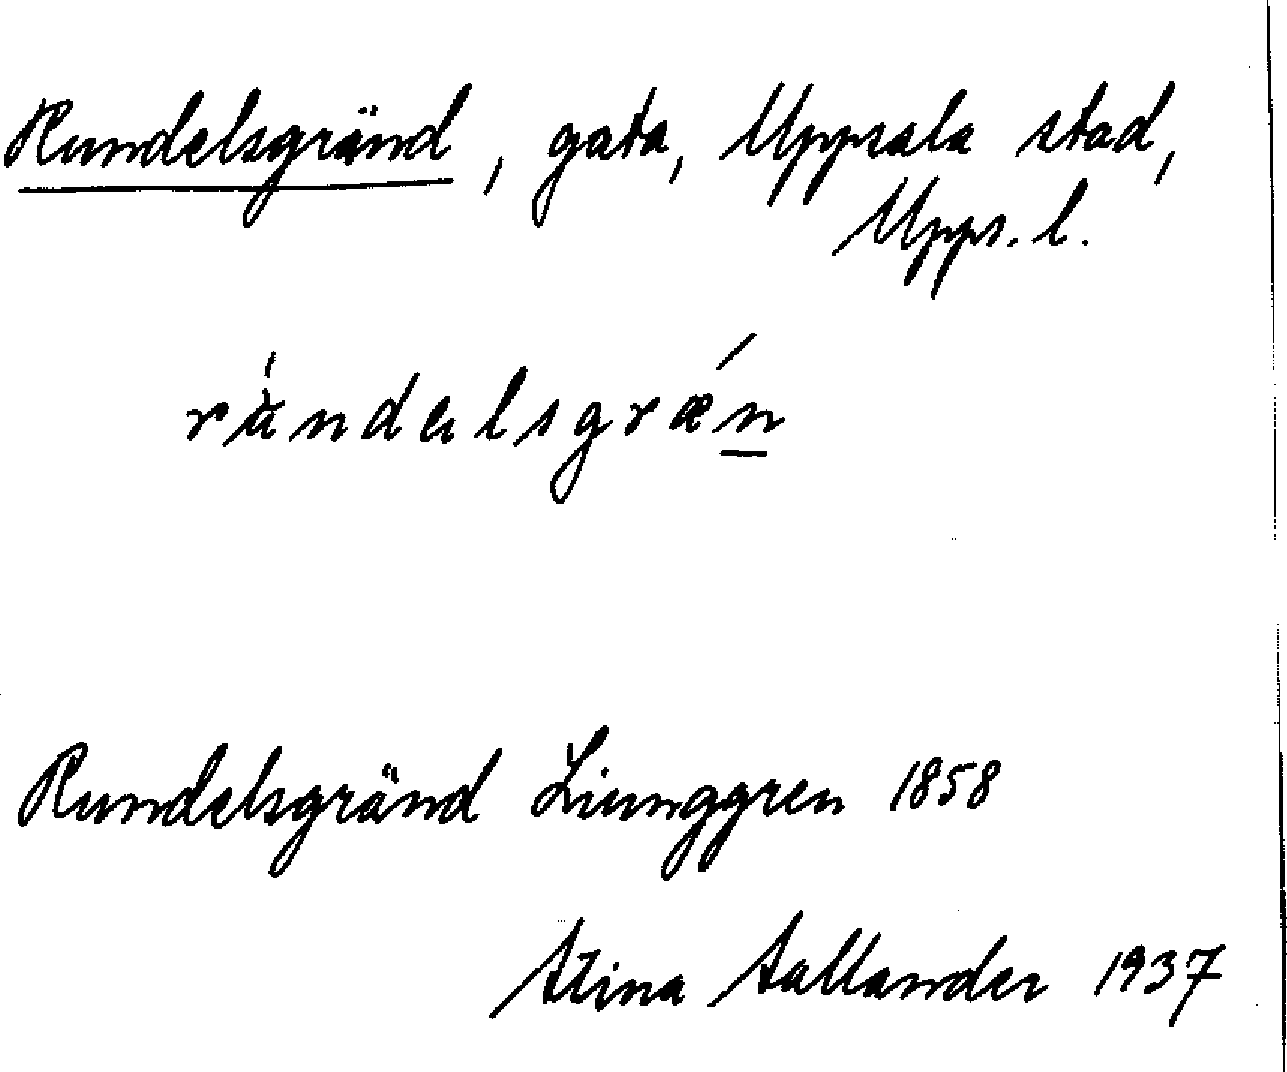 Rundelsgränd, gata, Uppsala stad,
Upps. l.
Rundelsgränd Liunggren 1858
Stina Sallander 1937